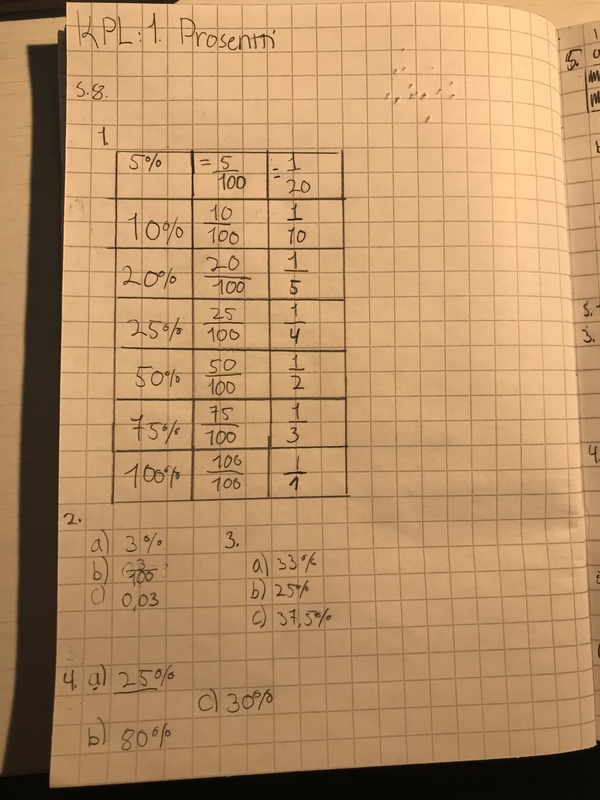 KPL: 1. Prosentti
S.8.
1.
5% = 5/100 = 1/20
10% 10/100 1/10
20% 20/100 1/5
25% 25/100 1/4
50% 50/100 1/2
75% 75/100 1/3
100% 100/100 1/1
2.
a) 3%
b) 3/100
c) 0,03
3.
a) 33%
b) 25%
c) 37,5%
4. a) 25%
b) 80%
c) 30%
5.
3.
4.